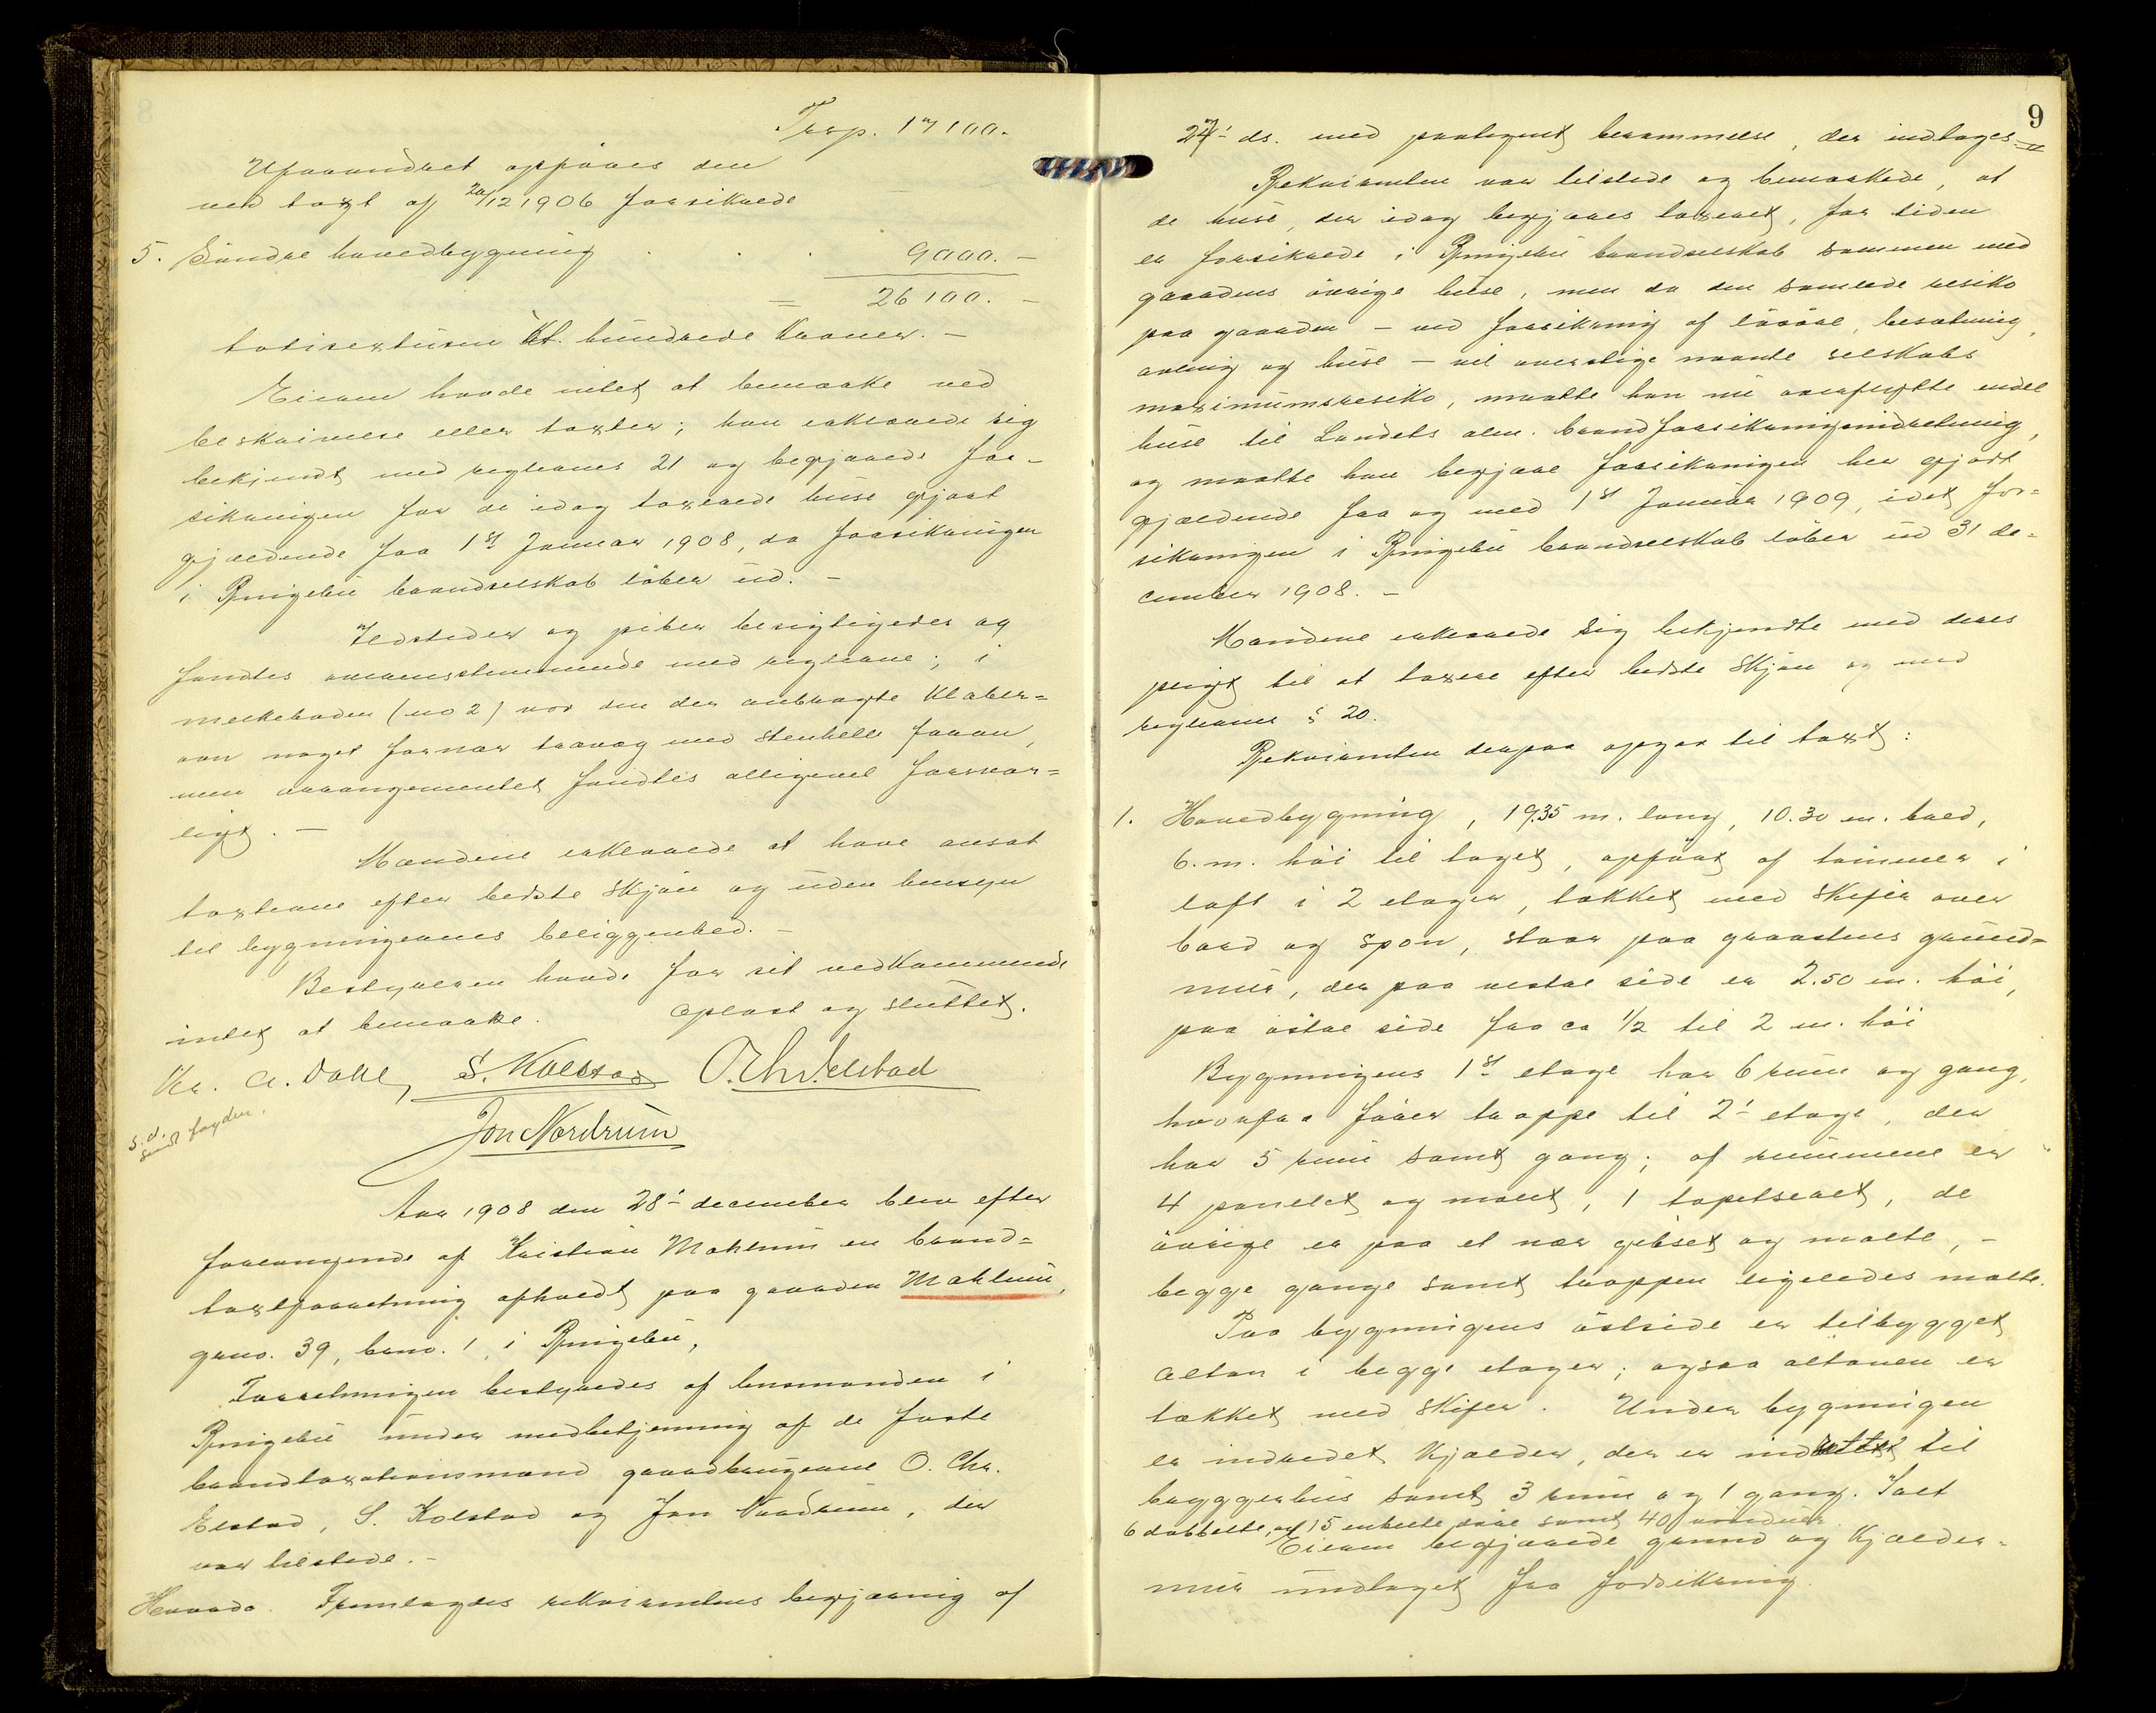 Trsp. 17100.
Uforandret opføres den
ved taxt af 20/12 1906 forsikrede
5. Søndre hovedbygning . . . 9000. –
= 26100. –
totisextusen Et hundrede Kroner. –
Eieren havde intet at bemærke ved
beskrivelse eller taxter; han erklærede sig
bekjendt med reglernes 21 og begjærede for-
sikringen for de idag taxerede huse gjort
gjældende fra 1st Januar 1908, da forsikringen
i Ringebu brandselskab løber ud. –
Ildsteder og piber besigtigedes og
fandtes overensstemmende med reglerne; i
melkeboden (no 2) var den der anbragte Klæber-
ovn noget for nær trævæg med stenhelle foran,
men arrangementet fandtes alligevel forsvar-
ligt. –
Mændene erklærede at have ansat
taxterne efter bedste Skjøn og uden hensyn
til bygningernes beliggenhed. –
Bestyreren havde for sit vedkommende
intet at bemærke. Oplæst og sluttet.
Kr. A. Dahl, S. Kolstad O. Chr. Elstad
s. d.
sendt fogden.
Jon Nordrum
Aar 1908 den 28' december blev efter
forlangende af Kristian Mæhlum en brand-
taxtforretning afholdt paa gaarden Mæhlum,
grno. 39, brno. 1, i Ringebu,
Forretningen bestyredes af lensmanden i
Ringebu under medbetjening af de faste
brandtaxationsmænd gaardbrugerne O. Chr.
Elstad, S. Kolstad og Jon Nordrum, der
var tilstede. –
Hvorda. Fremlagdes rekvirentens begjæring af
9
27' ds. med paategnet berammelse, der indtages =
Rekvirenten var tilstede og bemærkede, at
de huse, der idag begjæres taxeret, for tiden
er forsikrede i Ringebu brandselskab sammen med
gaardens øvrige huse, men da den samlede resiko
paa gaarden – ved forsikring af løsøre, besætning,
avling og huse – vil overstige nævnte selskabs
maximumsresiko, maatte han nu overflytte endel
huse til Landets alm. brandforsikringsindretning,
og maatte han begjære forsikringen her gjort
gjældende fra og med 1st Januar 1909, idet for-
sikringen i Ringebu brandselskab løber ud 31 de-
cember 1908. –
Mændene erklærede sig bekjendte med deres
pligt til at taxere efter bedste Skjøn og med
reglernes § 20.
Rekvirenten derpaa opgav til taxt:
1. Hovedbygning, 19.35 m. lang, 10.30 m. bred,
6. m. høi til taget, opført af tømmer i
laft i 2 etager, tækket med Skifer over
bord og spon, staar paa graastens grund-
mur, der paa vestre side er 2.50 m. høi,
paa østre side fra ca 1/2 til 2 m. høi
Bygningens 1st etage har 6 rum og gang,
hvorfra fører trappe til 2' etage, der
har 5 rum samt gang; af rummene er
4 panelet og malet, 1 tapetseret, de
øvrige er paa et nær gibset og malte, –
begge gange samt trappen ligeledes malte.
Paa bygningens østside er tilbygget
altan i begge etager; ogsaa altanen er
tækket med Skifer. Under bygningen
er indredet Kjælder, der er indrettet til
bryggerhus samt 3 rum og 1 gang. Ialt
6 dobbelte, og 15 enkelte døre samt 40 vinduer.
Eieren begjærede grund og Kjælder-
mur undtaget fra forsikring.